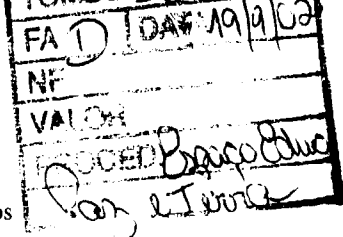 FA D DAT 19/9/02
NF
VALOR
PROCED Espaço Educ
Paz e Terra
os